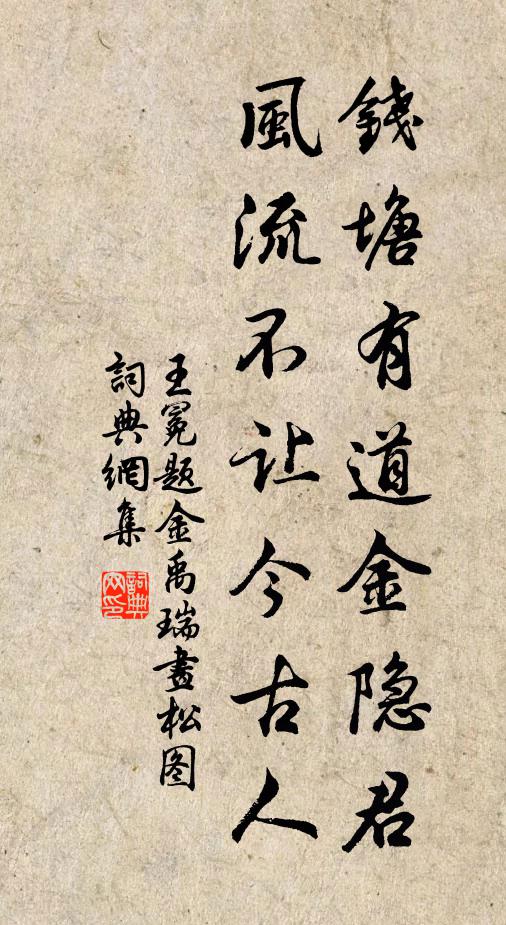 錢塘有道金隐君
風流不让今古人
王冕题金禹瑞畫松图
詞典網集
詞典网印